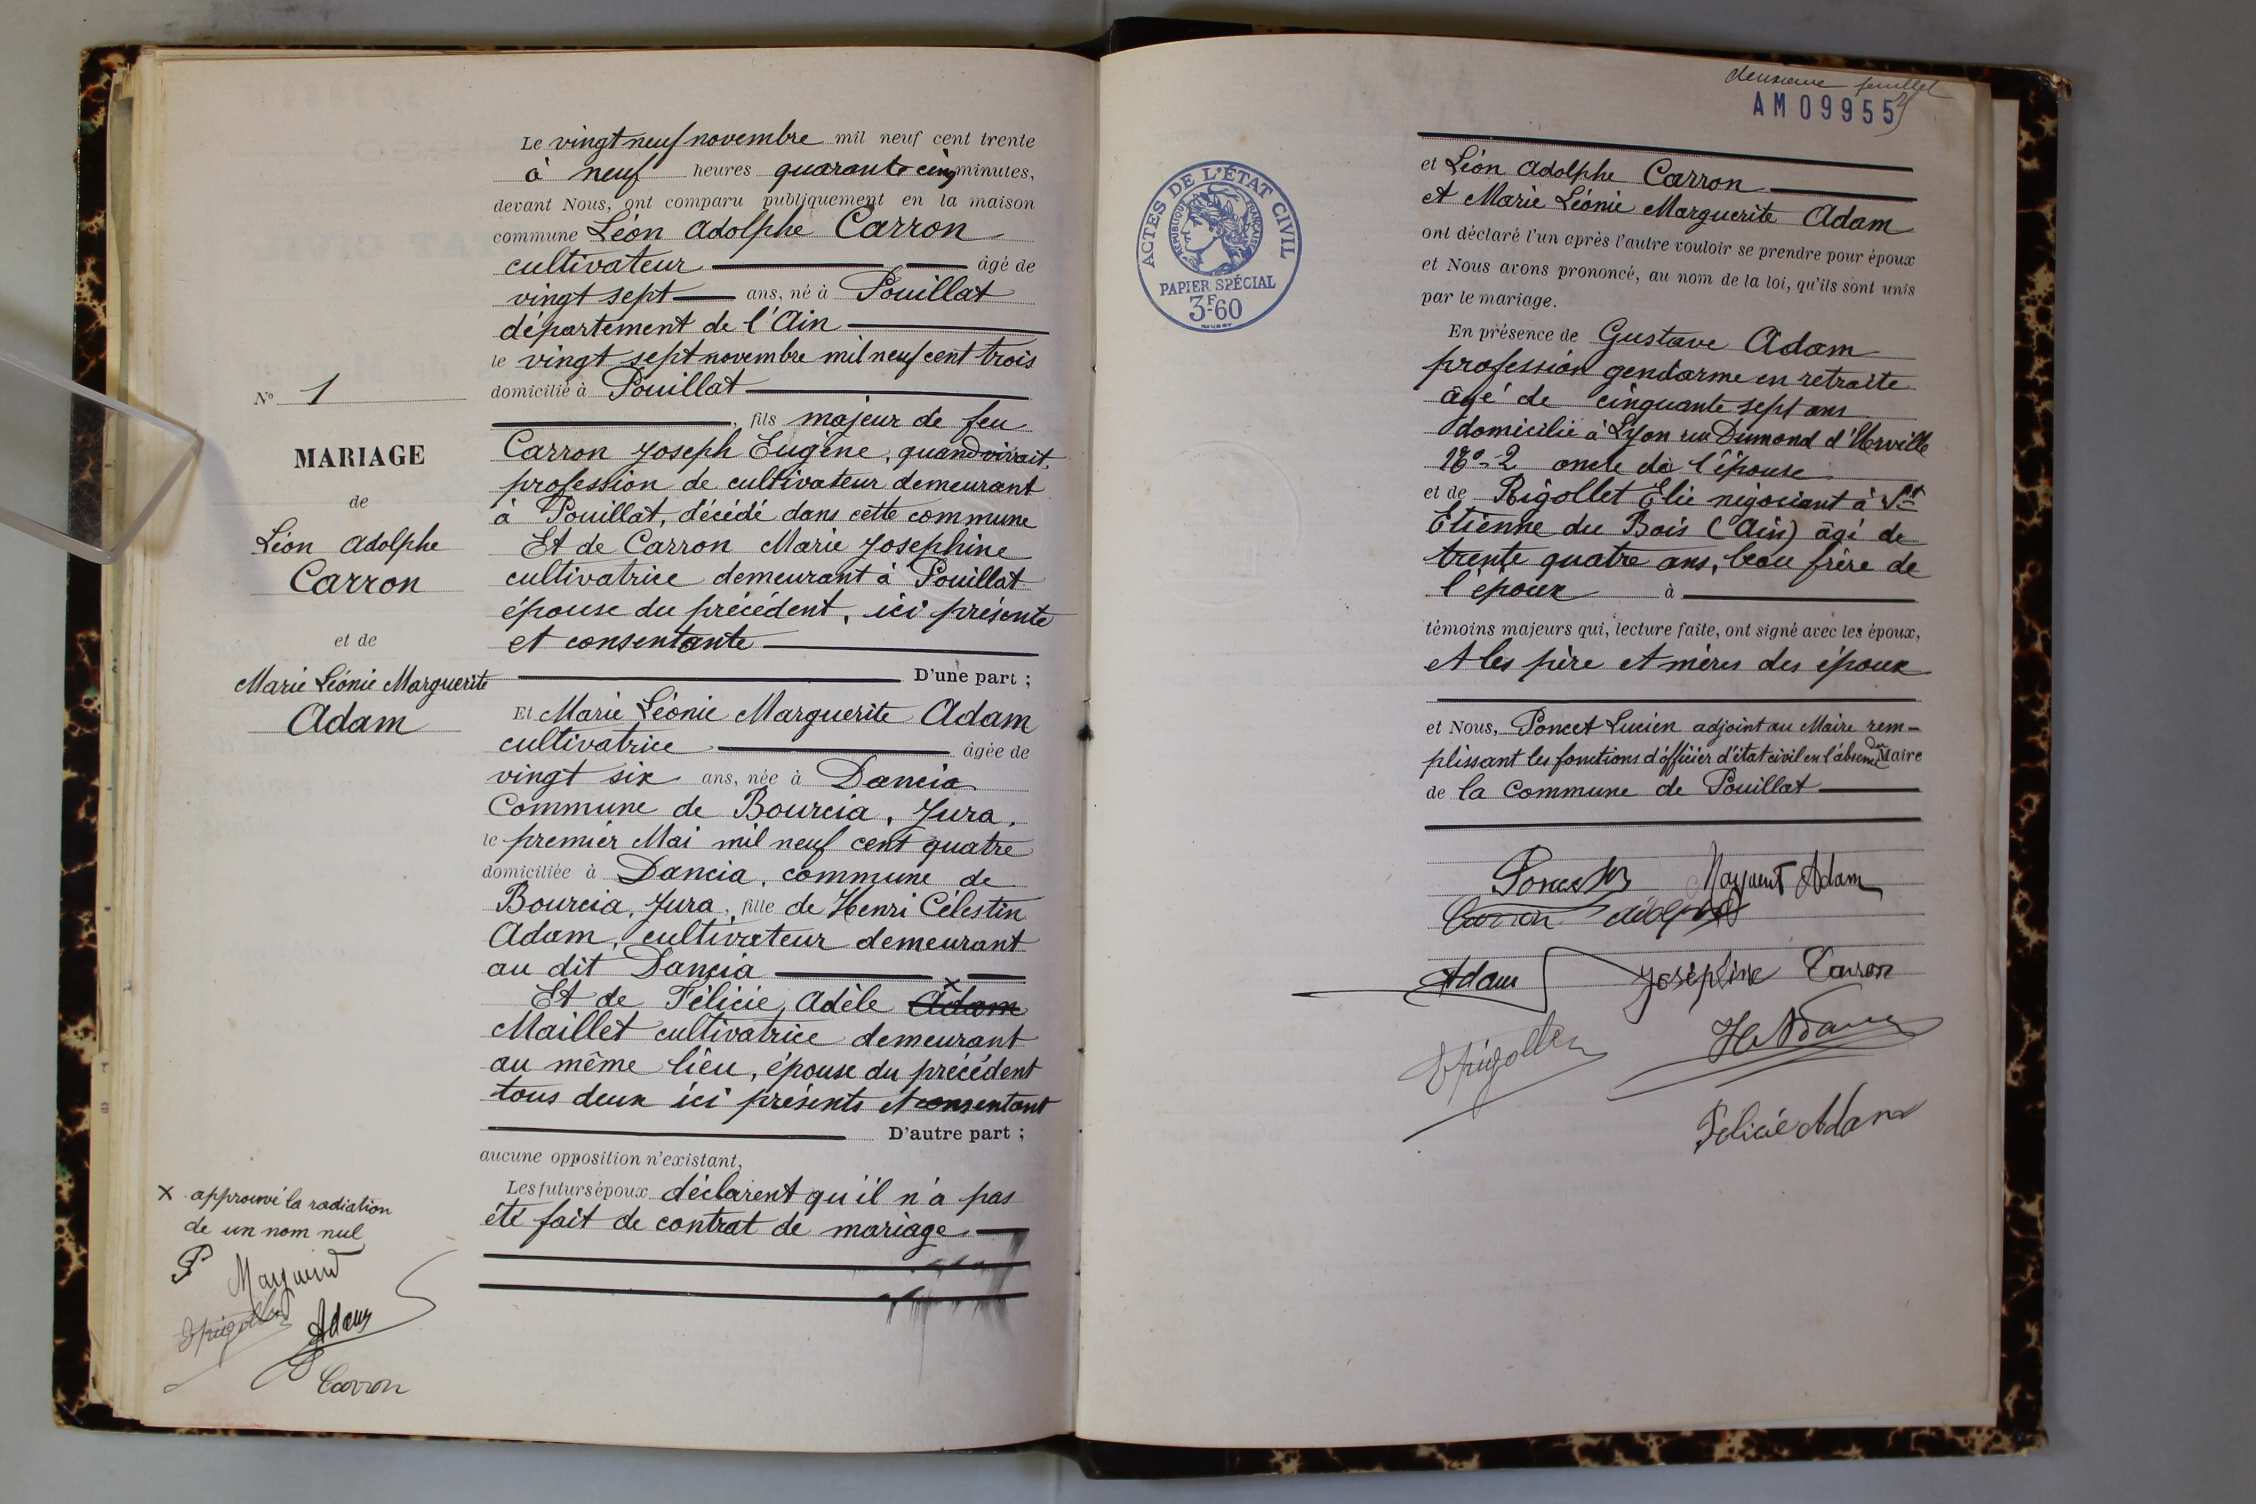 Le vingt neuf novembre mil neuf cent trente
à neuf heures quarante cinq minutes,
devant Nous, ont comparu publiquement en la maison
commune Léon Adolphe Carron
cultivateur âgé de
vingt sept ans, né à Pouillat
département de l'Ain
le vingt sept novembre mil neuf cent trois
domicilié à Pouillat
fils majeur de feu
Carron Joseph Eugène, quand vivait,
profession de cultivateur demeurant
à Pouillat, décédé dans cette commune
Et de Carron Marie Josephine
cultivatrice demeurant à Pouillat
épouse du précédent, ici présente
et consentante
D'une part ;
Et Marie Léonie Marguerite Adam
cultivatrice âgée de
vingt six ans, née à Dancia
Commune de Bourcia, Jura,
le premier Mai mil neuf cent quatre
domiciliée à Dancia, commune de
Bourcia, Jura, fille de Henri Célestin
Adam, cultivateur demeurant
au dit Dancia
Et de Félicie, Adèle Adam
Maillet cultivatrice demeurant
au même lieu, épouse du précédent
tous deux ici présents et consentant
D'autre part ;
aucune opposition n'existant,
Les futurs époux déclarent qu'il n'a pas
été fait de contrat de mariage.
N° 1
MARIAGE
de
Léon Adolphe
Carron
et de
Marie Léonie Marguerite
Adam
X approuvé la radiation
de un nom nul
P
Adam
Carron
deuxième feuillet
AM 09955
ACTES DE L'ÉTAT CIVIL
RÉPUBLIQUE FRANÇAISE
PAPIER SPÉCIAL
3F.60
et Léon Adolphe Carron
et Marie Léonie Marguerite Adam
ont déclaré l'un après l'autre vouloir se prendre pour époux
et Nous avons prononcé, au nom de la loi, qu'ils sont unis
par le mariage.
En présence de Gustave Adam
profession gendarme en retraite
âgé de cinquante sept ans
domicilié à Lyon rue Dumond d'Urville
N° 2 oncle de l'épouse
et de Rigollet Elie négociant à St
Etienne du Bois (Ain) âgé de
trente quatre ans, beau frère de
l'époux à
témoins majeurs qui, lecture faite, ont signé avec les époux,
et les père et mères des époux
et Nous, Poncet Lucien adjoint au Maire rem-
plissant les fonctions d'officier d'état civil en l'absence du Maire
de la Commune de Pouillat
Poncet Marguerit Adam
Carron Adolphe
Adam Joséphine Carron
H Adam
Félicie Adam